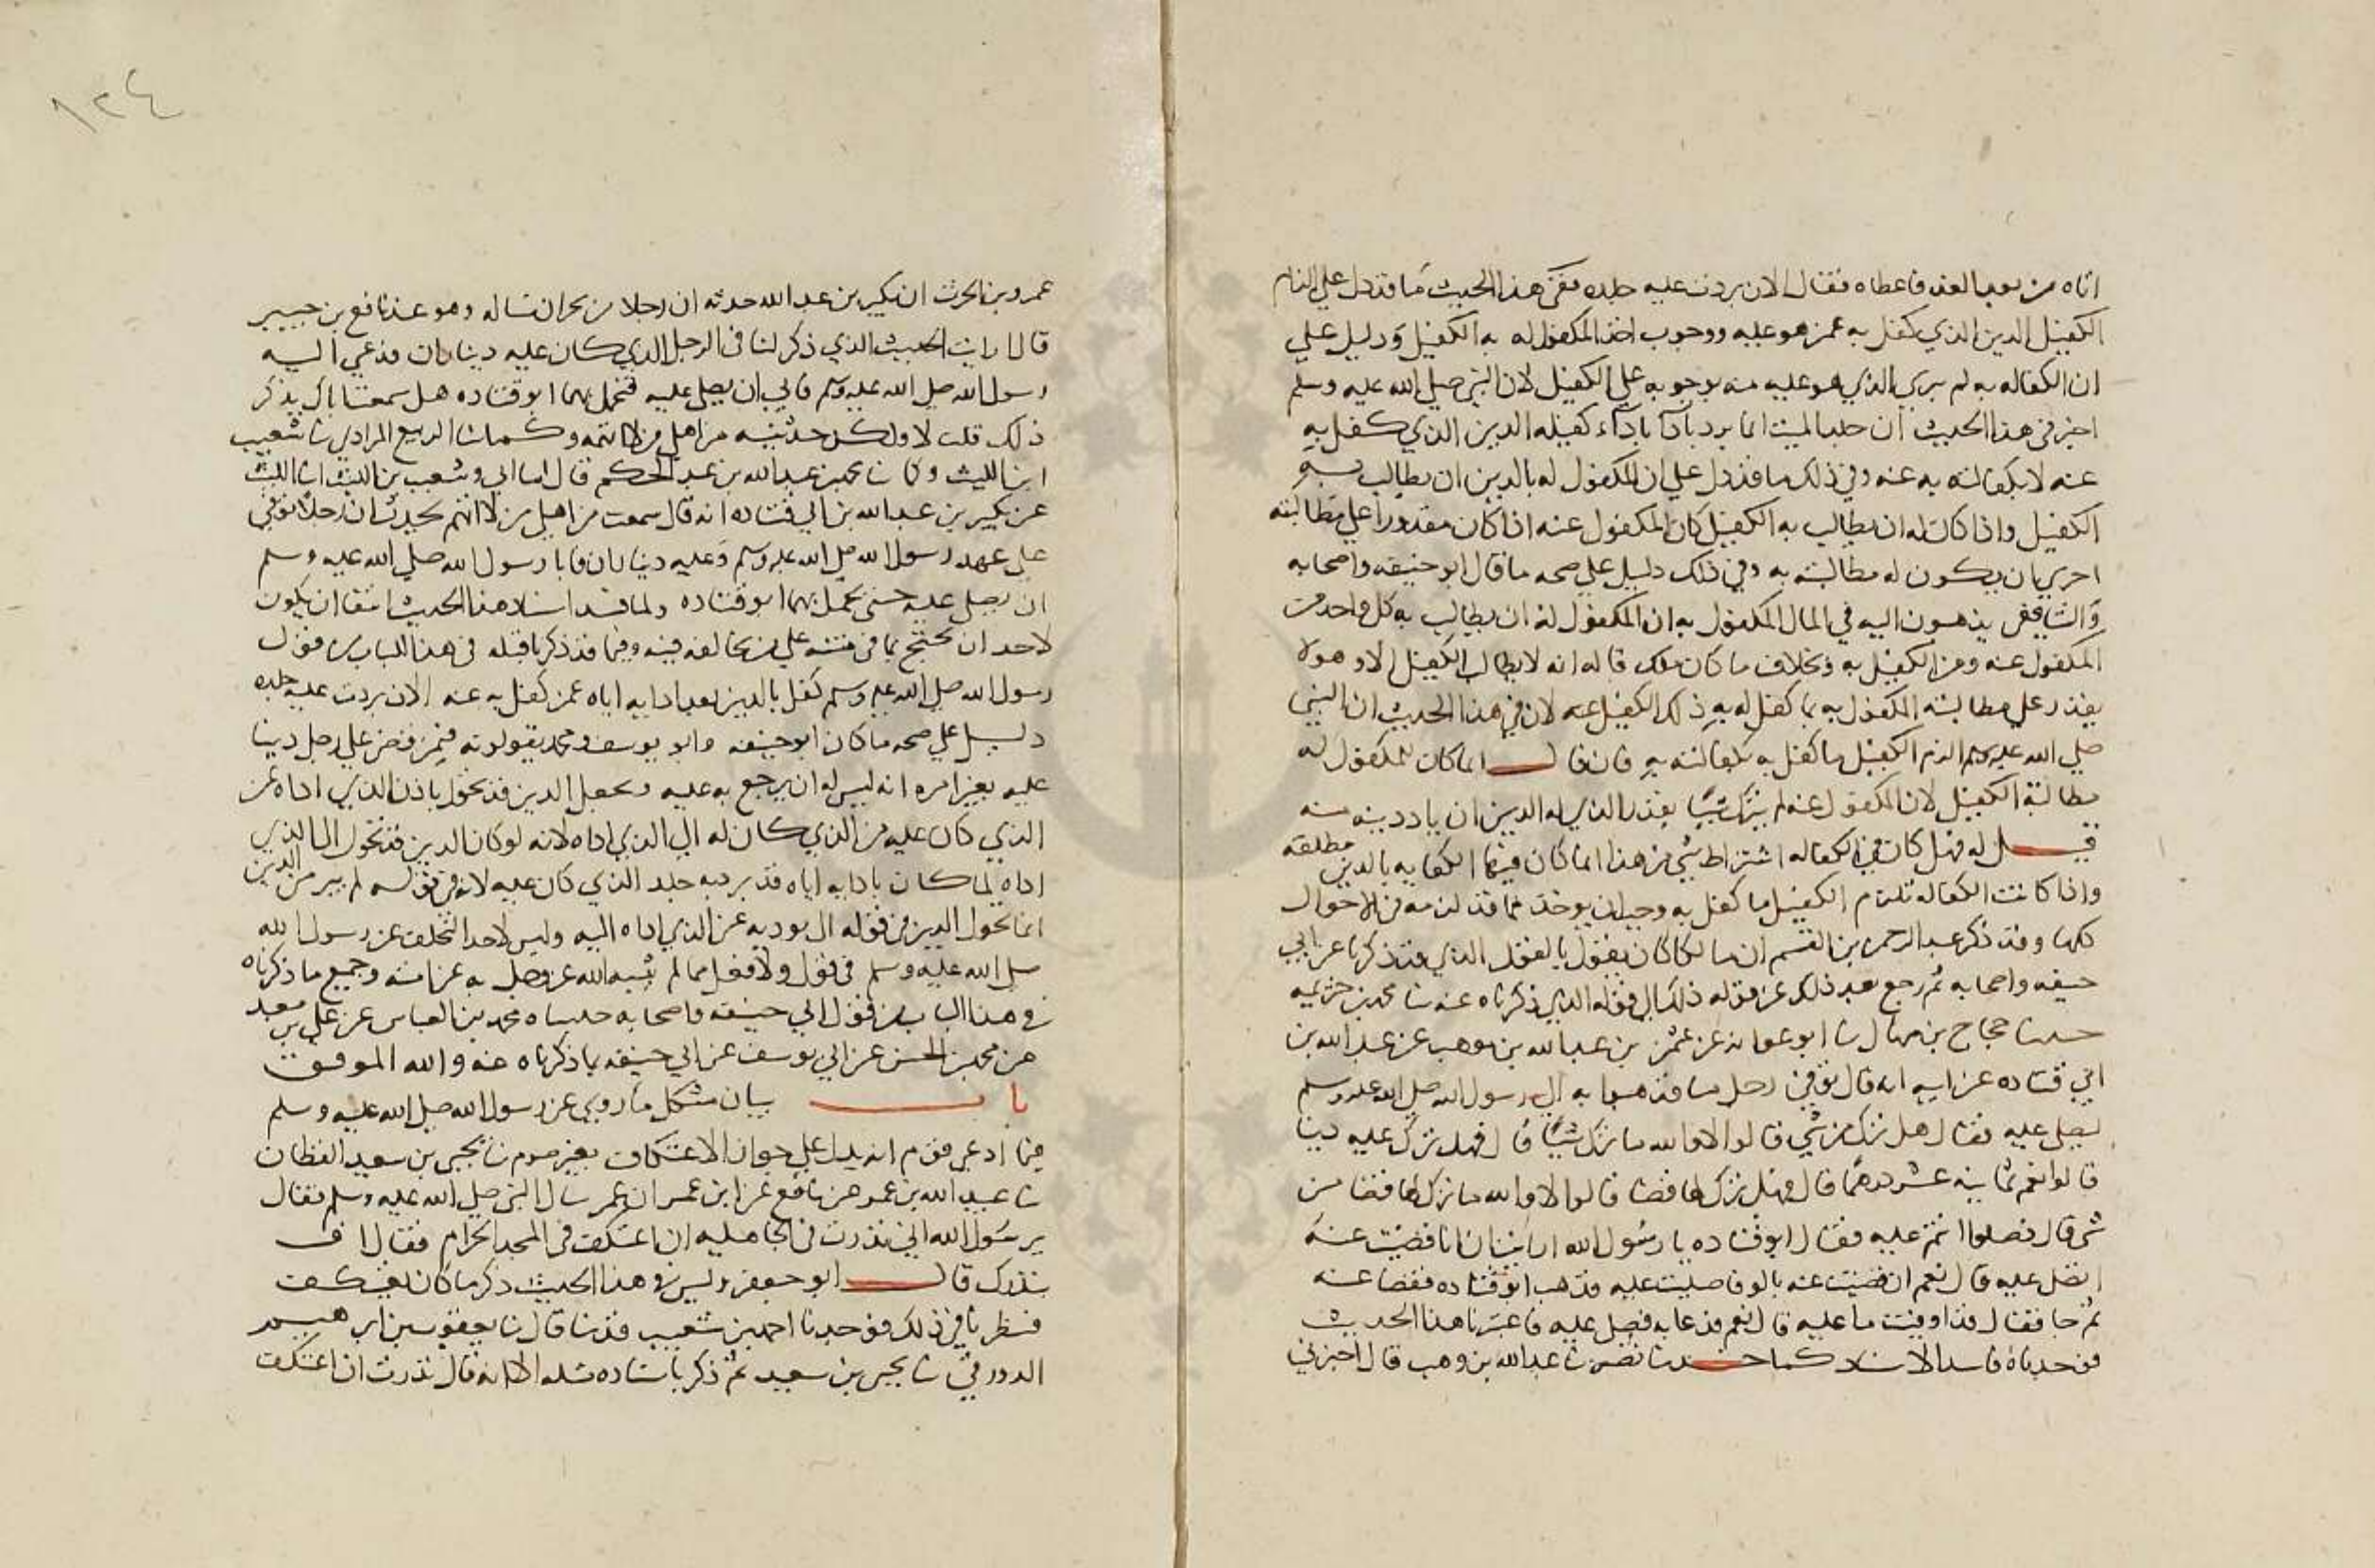 اتاه من بعد الغد فاعطاه فقال الان بردت عليه جلده ففي هذا الحديث ما قد دل علي الزام
الكفيل الدين الذي كفل به عمن هو عليه ووجوب اخذ المكفول له به الكفيل ودليل علي
ان الكفاله به لم يبرى الذي هو عليه منه بوجوبه علي الكفيل لان النبي صلي الله عليه وسلم
اخبر في هذا الحديث ان جلد الميت انما برد بادآ كفيله الدين الذي كفل به
عنه لا بكفالته به عنه وفي ذلك ما قد دل علي ان للمكفول له بالدين ان يطالب به
الكفيل واذا كان له ان يطالب به الكفيل كان المكفول عنه اذا كان مقدورا علي مطالبته
احرى بان يكون له مطالبته به وفي ذلك دليل علي صحه ما قال ابو حنيفه واصحابه
والشافعي يذهبون اليه في المال المكفول به ان للمكفول له ان يطالب به كل واحد من
المكفول عنه ومن الكفيل به وبخلاف ما كان ملك قاله انه لا يطالب الكفيل الا وهو لا
يقدر علي مطالبة المكفول به بما كفل له به ذلك الكفيل عنه لان في هذا الحديث ان النبي
صلي الله عليه وسلم الزم الكفيل ما كفل به بكفالته به فان قال انما كان للمكفول له
مطالبة الكفيل لان المكفول عنه لم يترك شيا يقدر الذي له الدين ان ياخذ دينه منه
قيل له فهل كان في الكفاله اشتراط شي من هذا انما كان فيها الكفاله بالدين مطلقه
واذا كانت الكفاله تلزم الكفيل ما كفل به وجب ان يوخذ بما قد لزمه في الاحوال
كلها وقد ذكر عبد الرحمن بن القسم ان مالكا كان يقول بالقول الذي قد ذكرنا عن ابي
حنيفه واصحابه ثم رجع بعد ذلك عن قوله ذلك الي قوله الذي ذكرناه عنه ثنا محمد بن خزيمه
حدثنا حجاج بن منهال ثنا ابو عوانه عن عثمن بن عبد الله بن موهب عن عبد الله بن
ابي قتاده عن ابيه انه قال توفي رجل منا فذهبوا به الي رسول الله صلي الله عليه وسلم
ليصلي عليه فقال هل ترك من شي قالوا لا والله ما ترك شيا قال فهل ترك عليه دينا
قالوا نعم ثمانية عشر درهما قال فهل ترك لها قضا قالوا لا والله ما ترك لها قضا من
شي قال فصلوا انتم عليه فقال ابو قتاده يا رسول الله ارايت ان انا قضيت عنه
اتصلي عليه قال نعم ان قضيت عنه بالوفا صليت عليه فذهب ابو قتاده فقضا عنه
ثم جا فقال قد اوفيت ما عليه قال نعم فدعا به فصلي عليه فاعتبرنا هذا الحديث
فوجدناه فاسد الاسناد كما حدثنا نصر ثنا عبد الله بن وهب قال اخبرني
عمرو بن الحرث ان بكير بن عبد الله حدثه ان رجلا من نجران ساله وهو عند نافع بن جبير
قال ارايت الحديث الذي ذكر لنا في الرجل الذي كان عليه ديناران فدعي اليه
رسول الله صلي الله عليه وسلم فابي ان يصلي عليه فتحمل بهما ابو قتاده هل سمعت اباك يذكر
ذلك قلت لا ولكن حدثنيه من اهلي من لا اتهمه وكما ثنا الربيع المرادي ثنا شعيب
ابن الليث وكما ثنا محمد بن عبد الله بن عبد الحكم قال انا ابي وشعيب بن الليث انا الليث
عن بكير بن عبد الله بن ابي قتاده انه قال سمعت من اهلي من لا اتهم يحدث ان رجلا توفي
علي عهد رسول الله صلي الله عليه وسلم وعليه ديناران فابا رسول الله صلي الله عليه وسلم
ان يصلي عليه حتى تحمل بهما ابو قتاده ولما فسد اسناد هذا الحديث انتفا ان يكون
لاحد ان يحتج بما في متنه علي من يخالفه فيه وفيما قد ذكرنا قبله في هذا الباب من قول
رسول الله صلي الله عليه وسلم كفل بالدين بعد ادايه اياه عمن كفل به عنه الان بردت عليه جلده
دليل علي صحه ما كان ابو حنيفه وابو يوسف ومحمد يقولونه فيمن قضى علي رجل دينا
عليه بغير امره انه ليس له ان يرجع به عليه ويجعل الدين قد تحول باذن الذي اداه عن
الذي كان عليه من الذي كان له الي الذي اداه لانه لو كان الدين قد تحول الى الذي
اداه لما كان بادايه اياه قد برد به جلد الذي كان عليه لانه في قوله لم يبر من الدين
انما تحول الدين في قوله الي مودیه عن الذي اداه اليه وليس لاحد التخلف عن رسول الله
صلي الله عليه وسلم في قول ولا فعل مما لم يثبه الله عز وجل به عن امته وجميع ما ذكرناه
في هذا الباب من قول ابي حنيفه واصحابه حدثناه محمد بن العباس عن علي بن معبد
عن محمد بن الحسن عن ابي يوسف عن ابي حنيفه بما ذكرناه عنه والله الموفق
باب بيان مشكل ما روي عن رسول الله صلي الله عليه وسلم
فيما ادعى قوم انه يدل علي جواز الاعتكاف بغير صوم ثنا يحيى بن سعيد القطان
ثنا عبيد الله بن عمر عن نافع عن ابن عمر ان عمر سال النبي صلي الله عليه وسلم فقال
يرسول الله اني نذرت في الجاهليه ان اعتكف في المسجد الحرام فقال اف
بنذرك قال ابو جعفر وليس في هذا الحديث ذكر ما كان يعتكف
فنظرنا في ذلك فوجدنا احمد بن شعيب قد ثنا قال ثنا يعقوب بن ابرهيم
الدورقي ثنا يحيى بن سعيد ثم ذكر باسناده مثله الا انه قال نذرت ان اعتكف
١٢٤